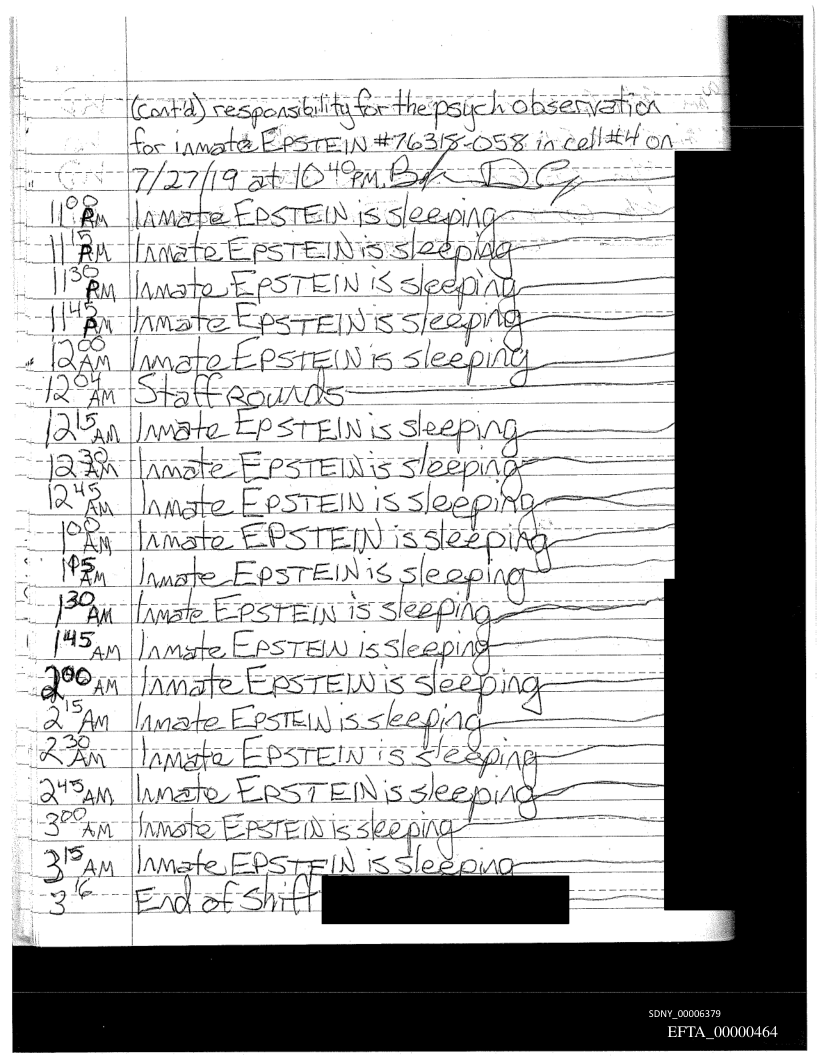 (cont'd) responsibility for the psych observation
for inmate EPSTEIN #76318-058 in cell #4 on
7/27/19 at 10 40 PM.
11 00 PM Inmate EPSTEIN is sleeping
11 15 PM Inmate EPSTEIN is sleeping
11 30 PM Inmate EPSTEIN is sleeping
11 45 PM Inmate EPSTEIN is sleeping
12 00 AM Inmate EPSTEIN is sleeping
12 04 AM Staff Rounds
12 15 AM Inmate EPSTEIN is sleeping
12 30 AM Inmate EPSTEIN is sleeping
12 45 AM Inmate EPSTEIN is sleeping
1 00 AM Inmate EPSTEIN is sleeping
1 15 AM Inmate EPSTEIN is sleeping
1 30 AM Inmate EPSTEIN is sleeping
1 45 AM Inmate EPSTEIN is sleeping
2 00 AM Inmate EPSTEIN is sleeping
2 15 AM Inmate EPSTEIN is sleeping
2 30 AM Inmate EPSTEIN is sleeping
2 45 AM Inmate EPSTEIN is sleeping
3 00 AM Inmate EPSTEIN is sleeping
3 15 AM Inmate EPSTEIN is sleeping
3 16 End of Shift
SDNY_00006379
EFTA_00000464